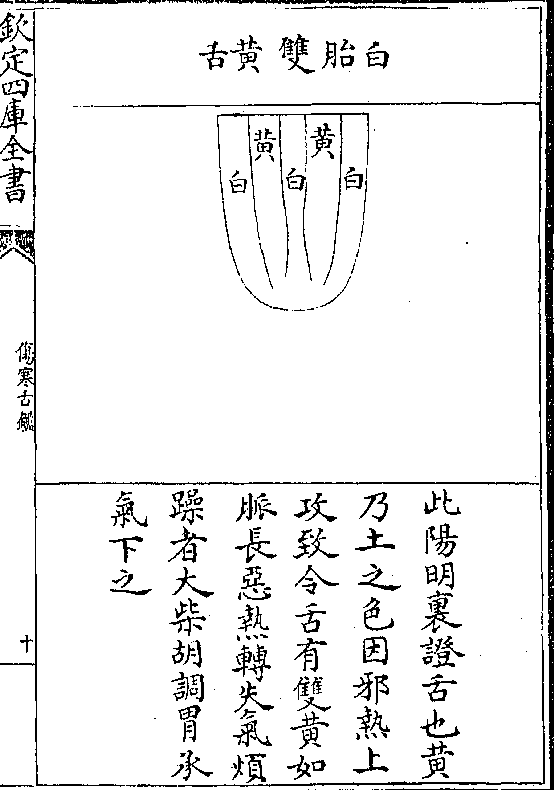 白胎雙黃舌
黃
黃
白
白
白
此陽明裏證舌也黃
乃土之色因邪熱上
攻致令舌有雙黃如
脈長惡熱轉失氣煩
躁者大柴胡調胃承
氣下之
欽定四庫全書
傷寒舌鑑
十